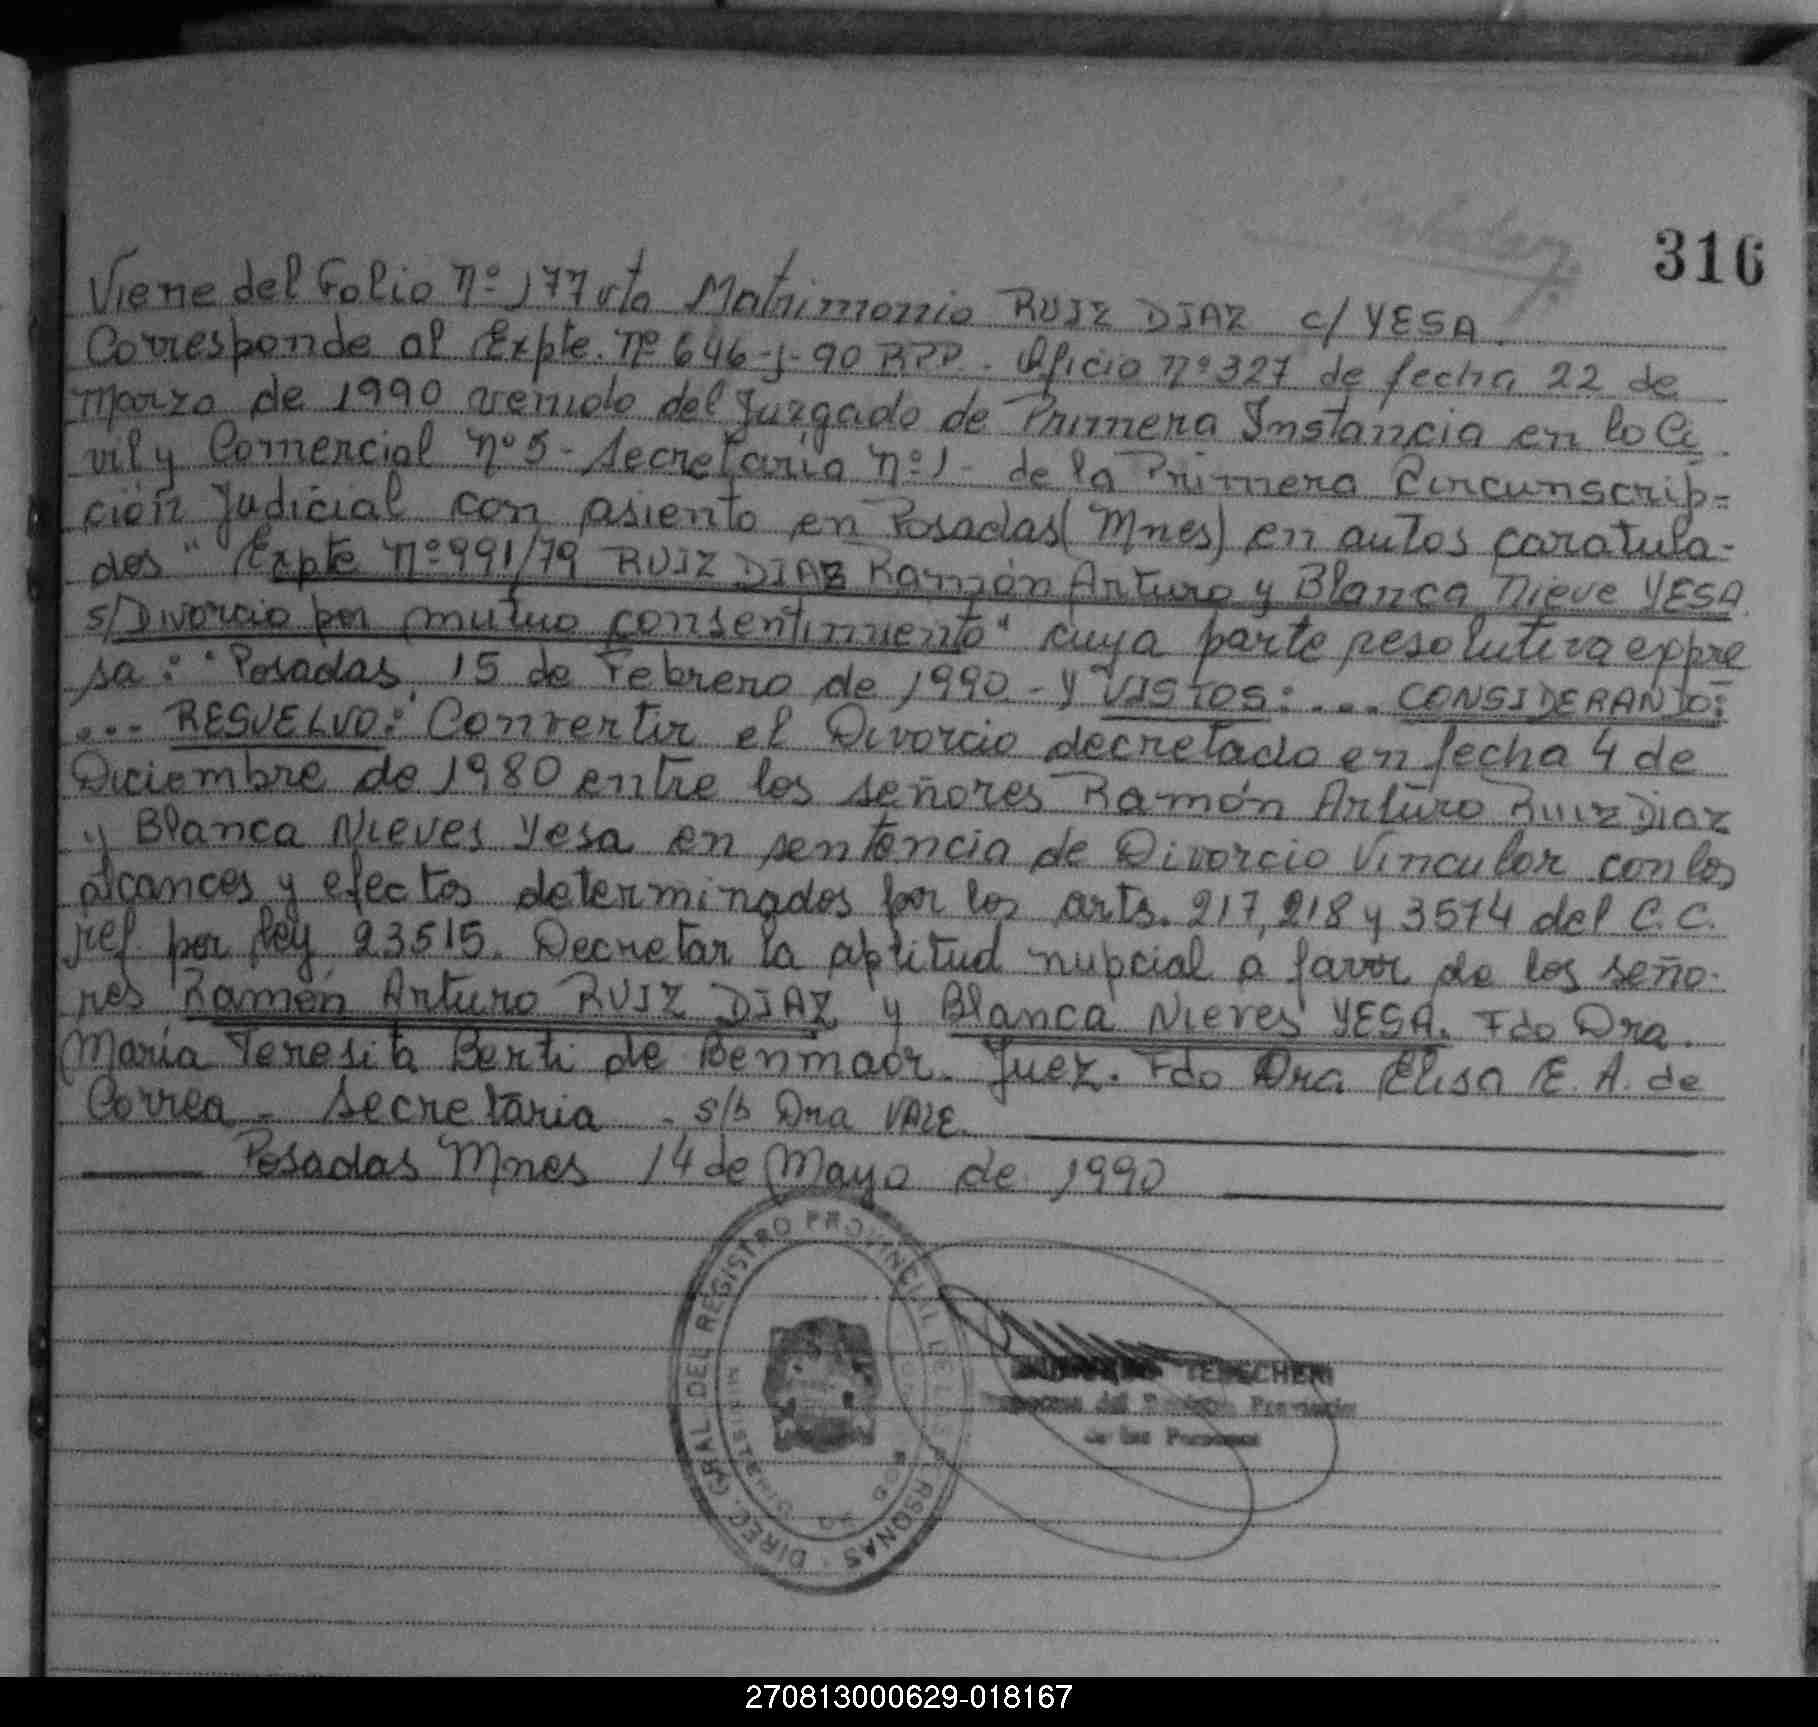 316
Viene del Folio Nº 177 vto Matrimonio RUIZ DIAZ c/ YESA.
Corresponde al Expte. Nº 646-j-90 RPP. Oficio Nº 327 de fecha 22 de
Marzo de 1990 venido del Juzgado de Primera Instancia en lo Ci
vil y Comercial Nº 5 - Secretaría Nº 1 - de la Primera Circunscrip=
ción Judicial con asiento en Posadas (Mnes) en autos caratula-
dos "Expte Nº 991/79 RUIZ DIAZ Ramón Arturo y Blanca Nieve YESA
s/Divorcio por mutuo consentimiento" cuya parte resolutiva expre
sa: "Posadas, 15 de Febrero de 1990 - Y VISTOS: ... CONSIDERANDO:
... RESUELVO: Convertir el Divorcio decretado en fecha 4 de
Diciembre de 1980 entre los señores Ramón Arturo Ruiz Diaz
y Blanca Nieves Yesa en sentencia de Divorcio Vincular con los
alcances y efectos determinados por los arts. 217, 218 y 3574 del C.C.
ref. por ley 23515. Decretar la aptitud nupcial a favor de los seño-
res Ramón Arturo RUIZ DIAZ y Blanca Nieves YESA. Fdo Dra.
María Teresita Berti de Benmaor. Juez. Fdo Dra Elisa E. A. de
Correa - Secretaria - s/b Dra VALE.
Posadas Mnes 14 de Mayo de 1990
DIREC. GRAL DEL REGISTRO PROVINCIAL DE LAS PERSONAS
de las Personas
270813000629-018167